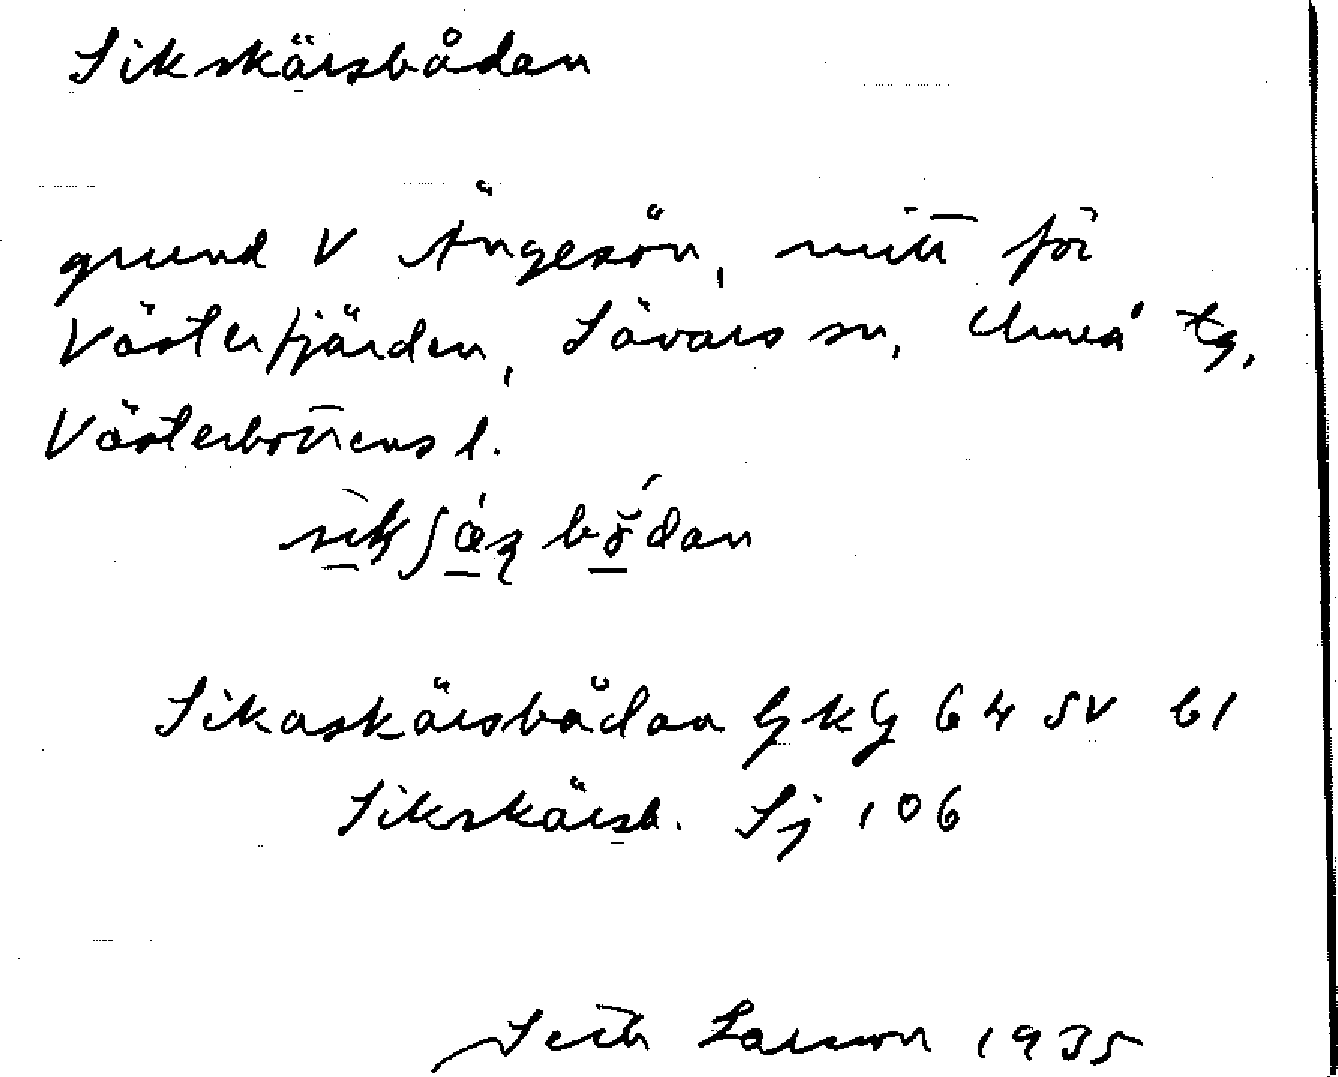 Sikskärsbådan
grund V Ängesön, mitt för
Västerfjärden, Sävars sn, Umeå tg,
Västerbottens l.
Sikaskärsbådan GKG 64 SV bl
Sikskärsb. Sj 106
Seth Larsson 1935